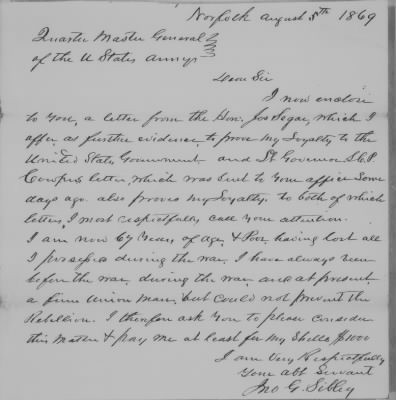 Norfolk August 5th 1869
Quarter Master General
of the U States Army
Dear Sir
I now enclose
to you, a letter from the Hon. Jos Segar, which I
offer as further evidence, to prove my Loyalty to the
United States Government and Lt Governor
Cowpers letter, which was sent to your office some
days ago also proves my Loyalty. to both of which
letters, I most respectfully call your attention.
I am now 67 years of age, & Poor, having lost all
I possessed during the war, I have always been
before the war, during the war, and at present
a firm Union man, but could not prevent the
Rebellion. I therefore ask you to please consider
this Matter & pay me at least for my Shells $1000
I am Very Respectfully
Your obt Servant
Jno G. Sibley